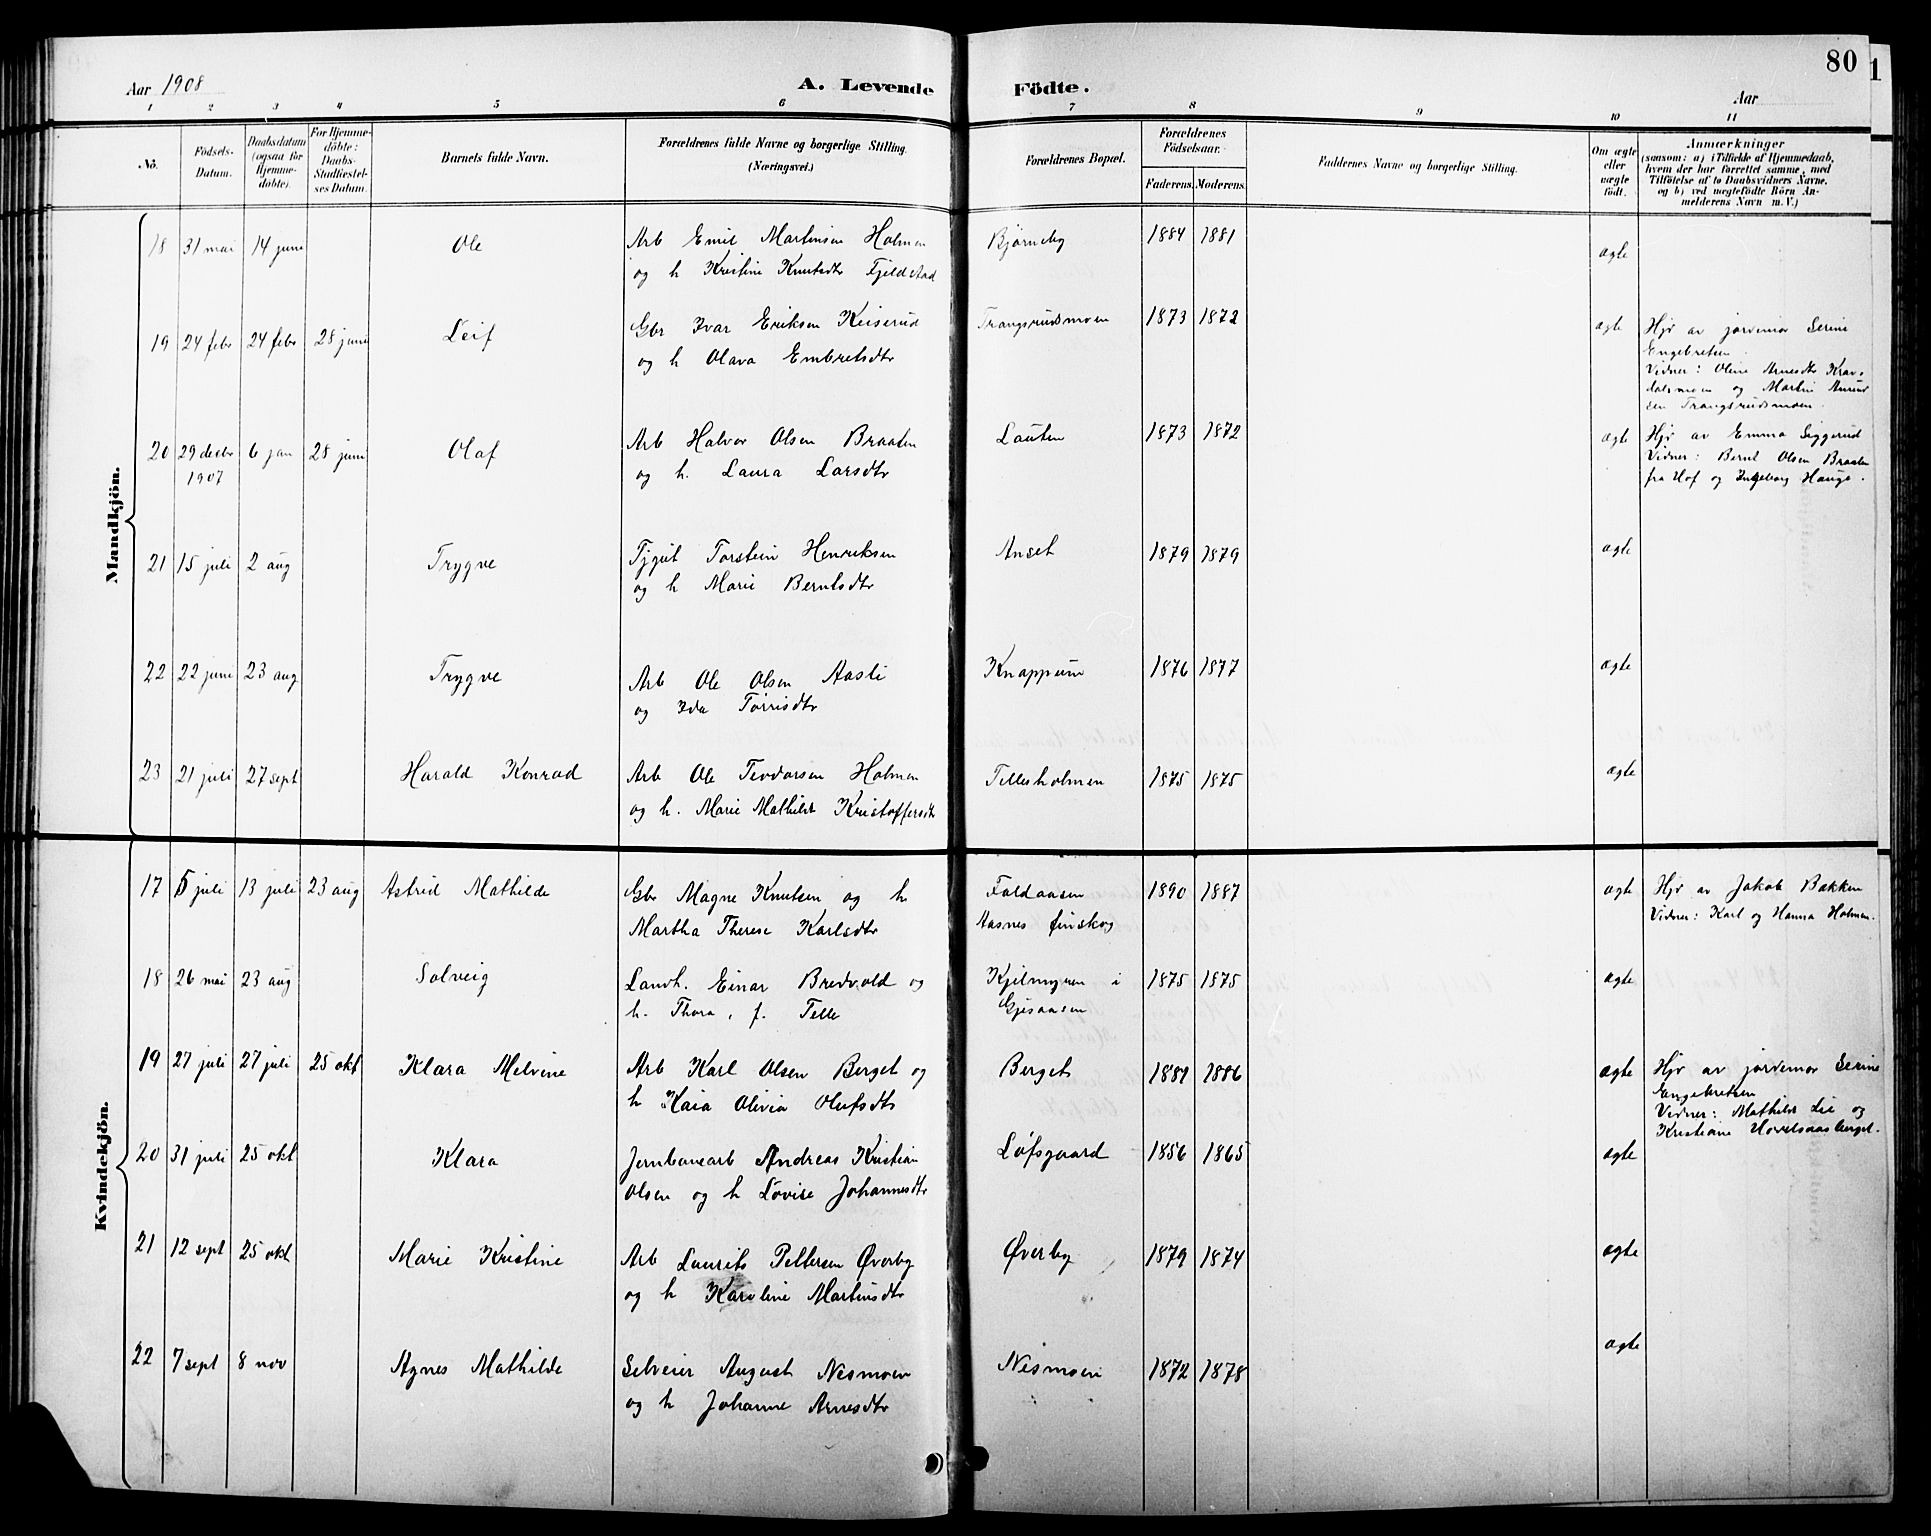 Aar 1908
A. Levende Födte.
80
Aar
1 2 3 4 5 6 7 8 9 10 11
No.
Födsels-
Datum.
Daabsdatum
(ogsaa for
Hjemme-
döbte).
For Hjemme-
döbte:
Daabs-
Stadfæstel-
ses Datum.
Barnets fulde Navn.
Forældrenes fulde Navne og borgerlige Stilling
(Næringsvei.)
Forældrenes Bopæl.
Forældrenes
Födselsaar.
Faderens.
Moderens.
Faddernes Navne og borgerlige Stilling.
Om ægte
eller
uægte
født.
Anmærkninger
(saasom: a) i Tilfælde af Hjemmedaab,
hvem der har forrettet samme, med
Tilföielse af to Daabsvidners Navne,
og b) ved uægtefödte Börn An-
melderens Navn m. V.)
Mandkjön.
18 31 mai 14 juni Ole Arb Emil Martinsen Holmen Bjørneby 1884 1881 ægte
og h Kristine Knutsdtr Fjeldstad
19 24 febr 24 febr 28 juni Leif Gbr Ivar Eriksen Keiserud Trangsrudsmoen 1873 1872 ægte Hjv av jordemor Serine
og h Olava Embretsdtr Engebretsen
Vidner: Oline Arnesdtr Krav-
dalsmoen og Martin Amund
sen Trangsrudsmoen.
20 29 decbr 6 jan 28 juni Olaf Arb Halvor Olsen Braaten Lauten 1873 1872 ægte Hjv av Emma Siggerud
1907 og h. Laura Larsdtr Vidner: Bernt Olsen Braaten
fra Hof og Ingeborg Hauge.
21 15 juli 2 aug Trygve Tjgut Torstein Henriksen Anset 1879 1879 ægte
og h Marie Berntsdtr
22 22 juni 23 aug Trygve Arb Ole Olsen Aasli Knappum 1876 1877 ægte
og Ida Tørrisdtr
23 21 juli 27 sept Harald Konrad Arb Ole Teodorsen Holmen Tellesholmen 1875 1875 ægte
og h. Marie Mathilde Kristoffersdtr
Kvindekjön.
17 5 juli 13 juli 23 aug Astrid Mathilde Gbr Magne Knutsen og h Faldaasen 1890 1887 ægte Hjv av Jakob Bakken
Martha Therese Karlsdtr Aasnes finskog Vidner: Karl og Hanna Holmen.
18 26 mai 23 aug Solveig Landh. Einar Bredvold og Kjelmyren i 1875 1875 ægte
h. Thora, f. Telle Gjesaasen
19 27 juli 27 juli 25 okt Klara Melvine Arb Karl Olsen Berget og Berget 1881 1886 ægte Hjv av jordemor Serine
h Kaia Olivia Olufsdtr Engebretsen
Vidner: Mathilde Lie og
Kristiane Hovelsaasberget.
20 31 juli 25 okt Klara Jernbanearb Andreas Kristian Løfsgaard 1856 1865 ægte
Olsen og h Lovise Johannesdtr
21 12 sept 25 okt Marie Kristine Arb Laurits Pettersen Øverby Øverby 1879 1874 ægte
og h Karoline Martinsdtr
22 7 sept 8 nov Agnes Mathilde Selveier August Nesmoen Nesmoen 1872 1878 ægte
og h Johanne Arnesdtr